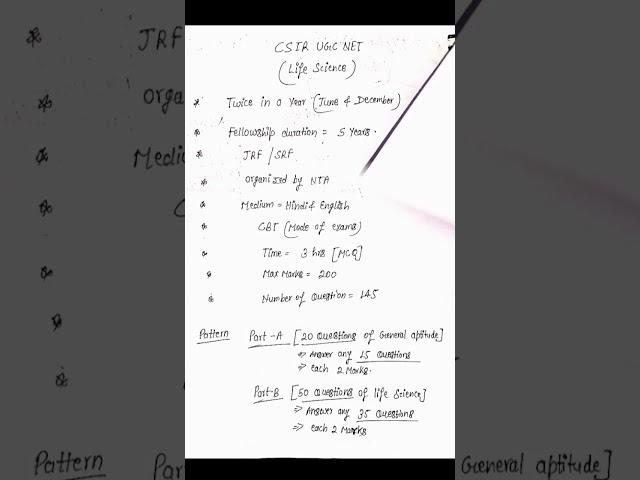 CSIR UGC NET
(Life Science)
* Twice in a Year (June & December)
* Fellowship duration = 5 Years.
* JRF / SRF
* Organized by NTA
* Medium = Hindi & English
* CBT (Mode of exams)
* Time = 3 hrs [MCQ]
* Max Marks = 200
* Number of Question = 145
Pattern Part-A [20 Questions of General aptitude]
⇒ Answer any 15 Questions
⇒ each 2 Marks.
Part-B [50 Questions of life Science]
⇒ Answer any 35 Questions
⇒ each 2 Marks
JRF
Orga
Medi
Pattern
Par
General aptitude]